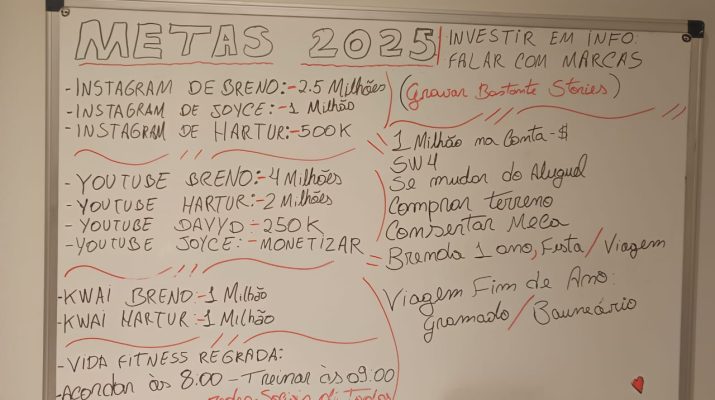 METAS 2025
- INSTAGRAM DE BRENO:-2.5 Milhões
- INSTAGRAM DE JOYCE:-1 Milhão
- INSTAGRAM DE HARTUR:-500K
- YOUTUBE BRENO:-4 Milhões
- YOUTUBE HARTUR:-2 Milhões
- YOUTUBE DAVYD:-250K
- YOUTUBE JOYCE:-MONETIZAR
- KWAI BRENO:-1 Milhão
- KWAI HARTUR:-1 Milhão
- VIDA FITNESS REGRADA:
- Acordar às 8:00 - Treinar às 09:00
INVESTIR EM INFO:
FALAR COM MARCAS
(Gravar Bastante Stories)
1 Milhão na Conta-$
SW4
Se mudar do Aluguel
Comprar terreno
Consertar Meca
Brenda 1 ano, Festa / Viagem
Viagem Fim de Ano:
Gramado / Bauneário